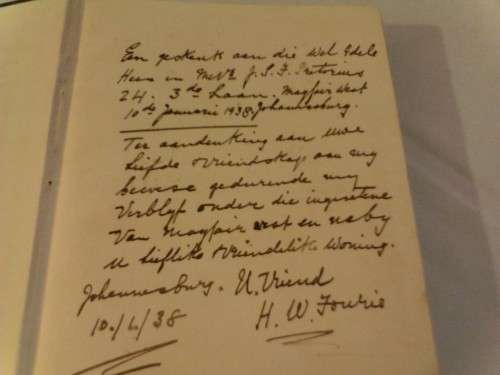 Een geskenk aan die Wel Edele
Heer en Mevr J. S. F. Pretorius
24. 3de Laan. Mayfair West
10de Januarie 1938 Johannesburg.
Ter aandenking aan uwe
liefde & vriendskap aan my
bewese gedurende my
Verblyf onder die ingesetene
Van Mayfair west en naby
U lieflike & vriendelike woning.
Johannesburg. U. Vriend
10./1./38 H. W. Fourie